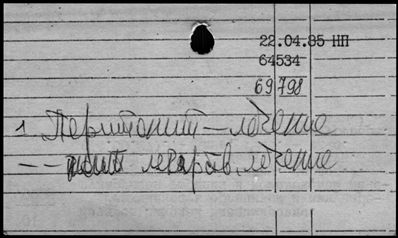 22.04.85 НП
64534
69798
1 Перитонит – лечение
– – лекарств. лечение